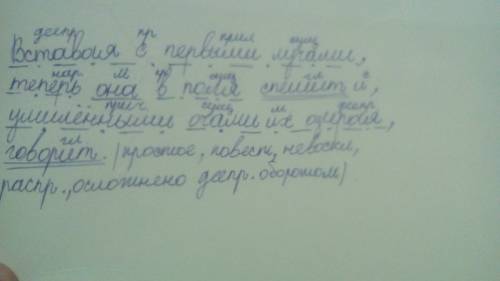 деепр пр прил сущ
Вставая с первыми лучами,
нар. м пр сущ гл с
теперь она в поля спешит и,
прич сущ м деепр
умилёнными очами их озирая,
гл
говорит. (простое, повест, невоскл,
распр., осложнено деепр. оборотом).